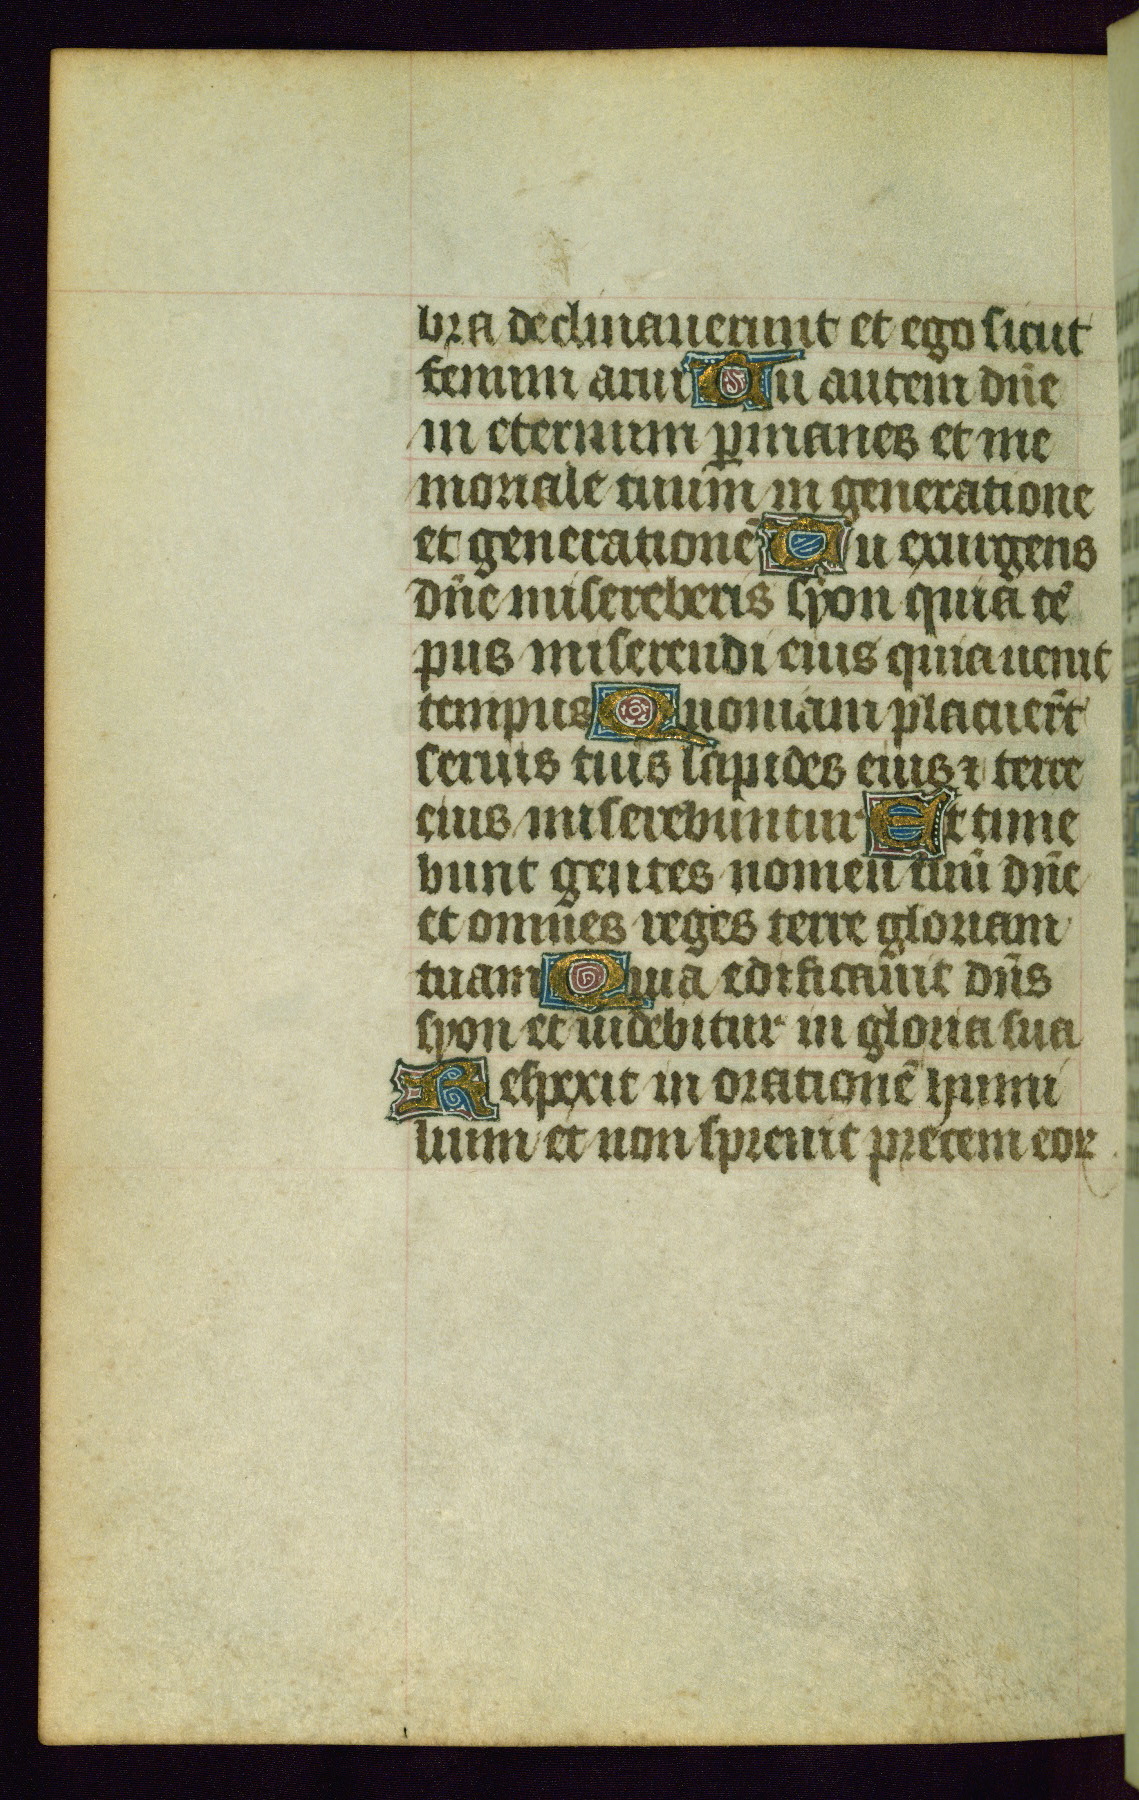 bra declinauerunt et ego sicut
fenum arui Tu autem dn̄e
in eternum ꝑmanes et me
moriale tuum in generatione
et generationē Tu exurgens
dn̄e misereberis syon quia tē
pus miserendi eius quia uenit
tempus Quoniam placuer̄t
seruis tuis lapides eius ⁊ terre
eius miserebuntur Et time
bunt gentes nomen tuū dn̄e
et omn̄es reges terre gloriam
tuam Quia edificauit dn̄s
syon et uidebitur in gloria sua
Respexit in orationē humi
lium et non spreuit precem eoꝝ